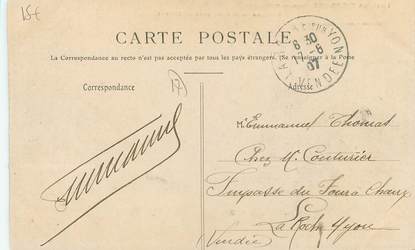 15t
CARTE POSTALE
La Correspondance au recto n'est pas acceptée par tous les pays étrangers. (Se renseigner à la Poste
Correspondance
Adresse
8 30
07
VENDEE
Emmanuel
M. Emmanuel Thomas
Chez M. Couturier
Impasse du Four à Chaux
La Roche s/yon
(Vendée)